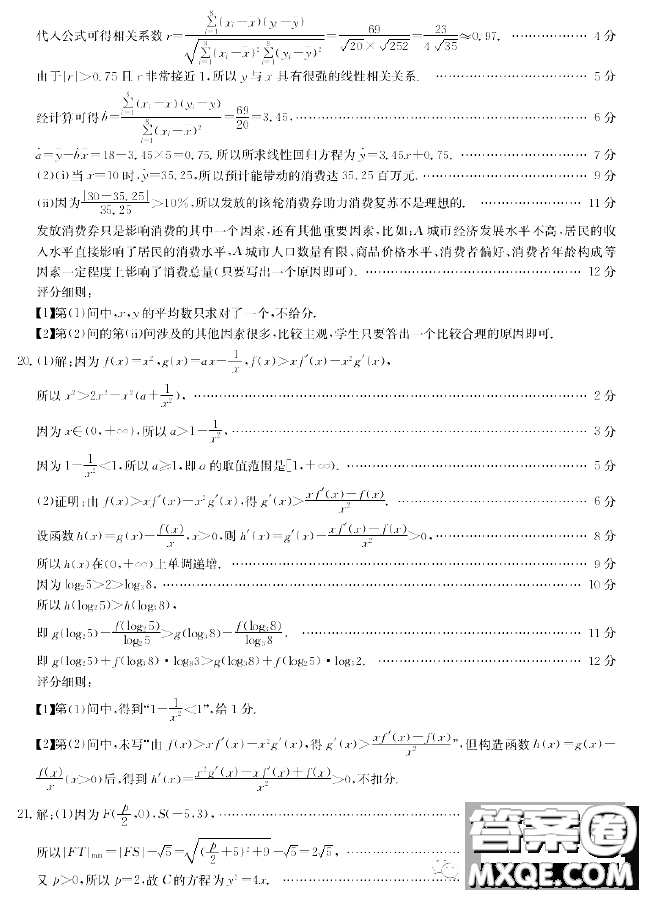 代入公式可得相关系数 r=\frac{\sum_{i=1}^{8}(x_i-\bar{x})(y_i-\bar{y})}{\sqrt{\sum_{i=1}^{8}(x_i-\bar{x})^2\sum_{i=1}^{8}(y_i-\bar{y})^2}}=\frac{69}{\sqrt{20}×\sqrt{252}}=\frac{23}{4\sqrt{35}}≈0.97. ……………… 4 分
由于|r|>0.75 且 r 非常接近 1,所以 y 与 x 具有很强的线性相关关系. ……………… 5 分
经计算可得\hat{b}=\frac{\sum_{i=1}^{8}(x_i-\bar{x})(y_i-\bar{y})}{\sum_{i=1}^{8}(x_i-\bar{x})^2}=\frac{69}{20}=3.45, ……………… 6 分
\hat{a}=\bar{y}-\hat{b}\bar{x}=18-3.45×5=0.75.所以所求线性回归方程为 \hat{y}=3.45x+0.75. ……………… 7 分
(2)(i)当 x=10 时,\hat{y}=35.25,所以预计能带动的消费达 35.25 百万元. ……………… 9 分
(ii)因为\frac{|30-35.25|}{35.25}>10%,所以发放的该轮消费券助力消费复苏不是理想的. ……………… 11 分
发放消费券只是影响消费的其中一个因素,还有其他重要因素,比如:A 城市经济发展水平不高,居民的收
入水平直接影响了居民的消费水平,A 城市人口数量有限、商品价格水平、消费者偏好、消费者年龄构成等
因素一定程度上影响了消费总量(只要写出一个原因即可). ……………… 12 分
评分细则:
【1】第(1)问中,x,y 的平均数只求对了一个,不给分.
【2】第(2)问的第(ii)问涉及的其他因素很多,比较主观,学生只要答出一个比较合理的原因即可.
20. (1)解:因为 f(x)=x²,g(x)=ax-\frac{1}{x},f(x)>xf′(x)-x²g′(x),
所以 x²>2x²-x²(a+\frac{1}{x²}), ……………… 2 分
因为 x∈(0,+∞),所以 a>1-\frac{1}{x²}, ……………… 3 分
因为 1-\frac{1}{x²}<1,所以 a≥1,即 a 的取值范围是[1,+∞). ……………… 5 分
(2)证明:由 f(x)>xf′(x)-x²g′(x),得 g′(x)>\frac{xf′(x)-f(x)}{x²}. ……………… 6 分
设函数 h(x)=g(x)-\frac{f(x)}{x},x>0,则 h′(x)=g′(x)-\frac{xf′(x)-f(x)}{x²}>0, ……………… 8 分
所以 h(x)在(0,+∞)上单调递增. ……………… 9 分
因为 log₂5>2>log₃8, ……………… 10 分
所以 h(log₂5)>h(log₃8),
即 g(log₂5)-\frac{f(log₂5)}{log₂5}>g(log₃8)-\frac{f(log₃8)}{log₃8}. ……………… 11 分
即 g(log₂5)+f(log₃8)·log₈3>g(log₃8)+f(log₂5)·log₅2. ……………… 12 分
评分细则:
【1】第(1)问中,得到“1-\frac{1}{x²}<1”,给 1 分.
【2】第(2)问中,未写“由 f(x)>xf′(x)-x²g′(x),得 g′(x)>\frac{xf′(x)-f(x)}{x²}”,但构造函数 h(x)=g(x)-
\frac{f(x)}{x}(x>0)后,得到 h′(x)=\frac{x²g′(x)-xf′(x)+f(x)}{x²}>0,不扣分.
21. 解:(1)因为 F(\frac{p}{2},0),S(-5,3), ………………
所以|FT|min=|FS|-\sqrt{5}=\sqrt{(\frac{p}{2}+5)²+9}-\sqrt{5}=2\sqrt{5}, ………………
又 p>0,所以 p=2,故 C 的方程为 y²=4x. ………………
答案圈
MXQE.COM